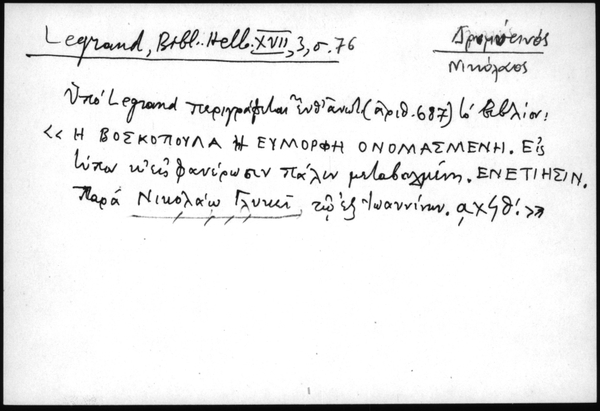 Legrand, Bibl. Hell. XVII, 3, σ. 76
Δριμυτινός
Νικόλαος
Ὑπό Legrand περιγράφεται ἐνθ' ἀνωτ. (ἀριθ. 687) τό βιβλίον:
<< Η ΒΟΣΚΟΠΟΥΛΑ Η ΕΥΜΟΡΦΗ ΟΝΟΜΑΣΜΕΝΗ. Εἰς
τύπον κ' εἰς φανέρωσιν πάλιν μεταβαλμένη. ΕΝΕΤΙΗΣΙΝ.
Παρά Νικολάῳ Γλυκεῖ, τῷ ἐξ Ἰωαννίνων. αχϟθ'. >>